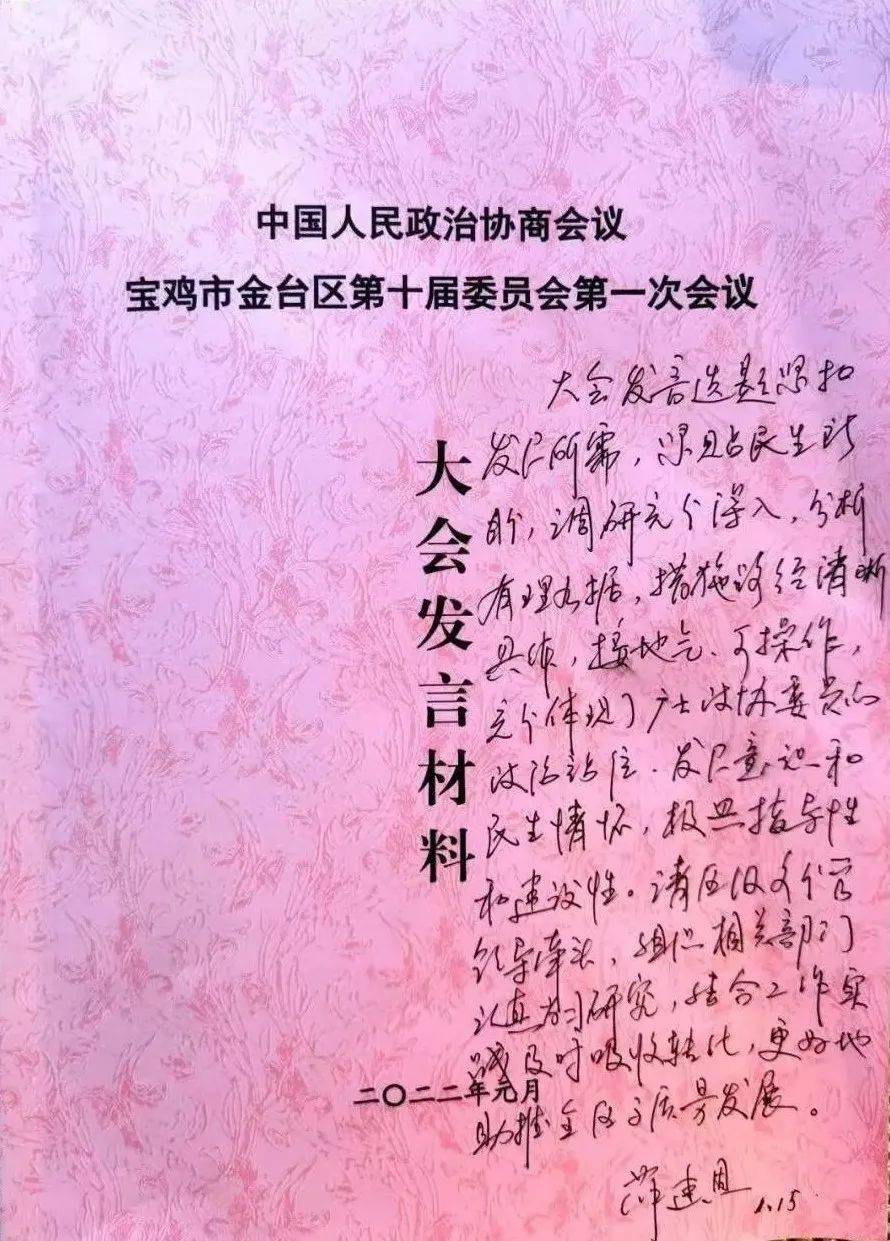 中国人民政治协商会议
宝鸡市金台区第十届委员会第一次会议
大会发言材料
二〇二二年元月
大会发言选题紧扣
发展所需，紧贴民生所
盼，调研充分深入，分析
有理有据，措施路径清晰
具体，接地气、可操作，
充分体现了广大政协委员的
政治站位、发展意识和
民生情怀，极具指导性
和建设性。请区级各分管
领导牵头，组织相关部门
认真学习研究，结合工作实
践及时吸收转化，更好地
助推全区高质量发展。
薛建恩 1.15